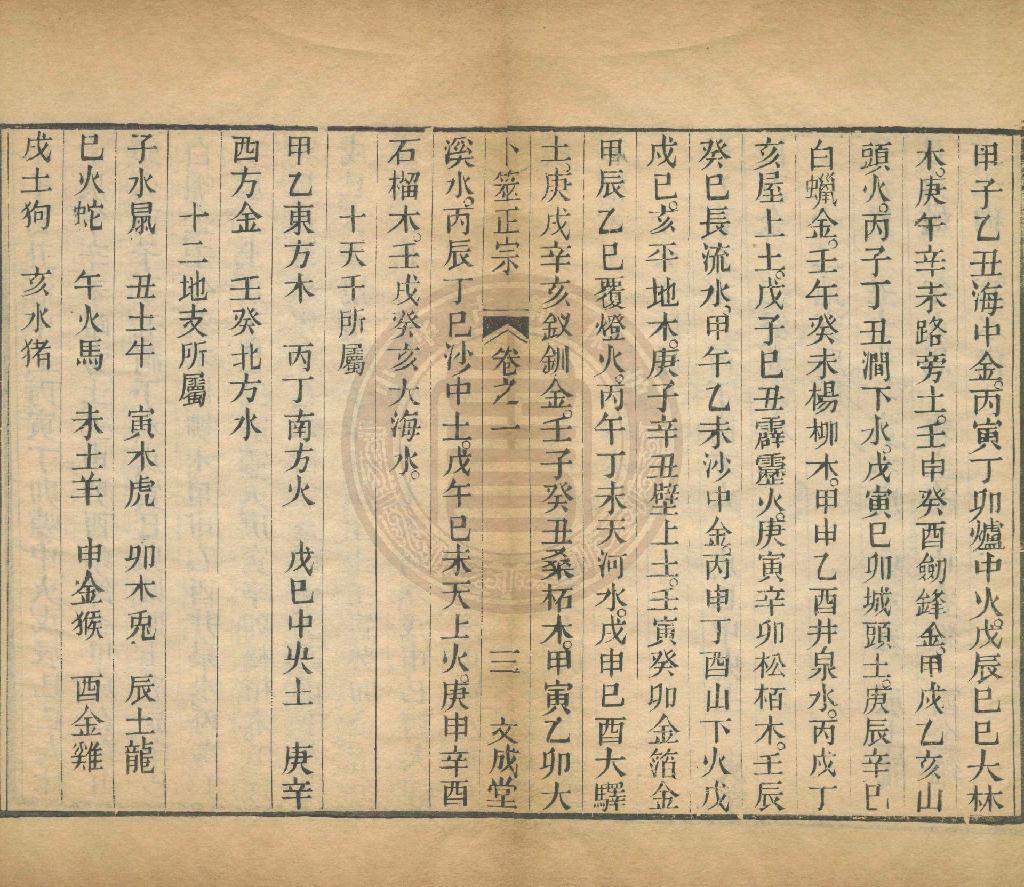 甲子乙丑海中金。丙寅丁卯爐中火。戊辰巳巳大林
木。庚午辛未路旁土。壬申癸酉劍鋒金。甲戌乙亥山
頭火。丙子丁丑澗下水。戊寅巳卯城頭土。庚辰辛巳
白蠟金。壬午癸未楊柳木。甲申乙酉井泉水。丙戌丁
亥屋上土。戊子巳丑霹靂火。庚寅辛卯松栢木。壬辰
癸巳長流水。甲午乙未沙中金。丙申丁酉山下火戊
戌巳。亥平地木。庚子辛丑壁上土。壬寅癸卯金箔金
甲辰乙巳覆燈火。丙午丁未天河水。戊申巳酉大驛
土。庚戌辛亥釵釧金。壬子癸丑桑柘木。甲寅乙卯大
卜筮正宗 卷之一 三 文成堂
溪水。丙辰丁巳沙中土。戊午巳未天上火。庚申辛酉
石榴木。壬戌癸亥大海水。
十天干所屬
甲乙東方木 丙丁南方火 戊巳中央土 庚辛
西方金 壬癸北方水
十二地支所屬
子水鼠 丑土牛 寅木虎 卯木兎 辰土龍
巳火蛇 午火馬 未土羊 申金猴 酉金雞
戌土狗 亥水猪